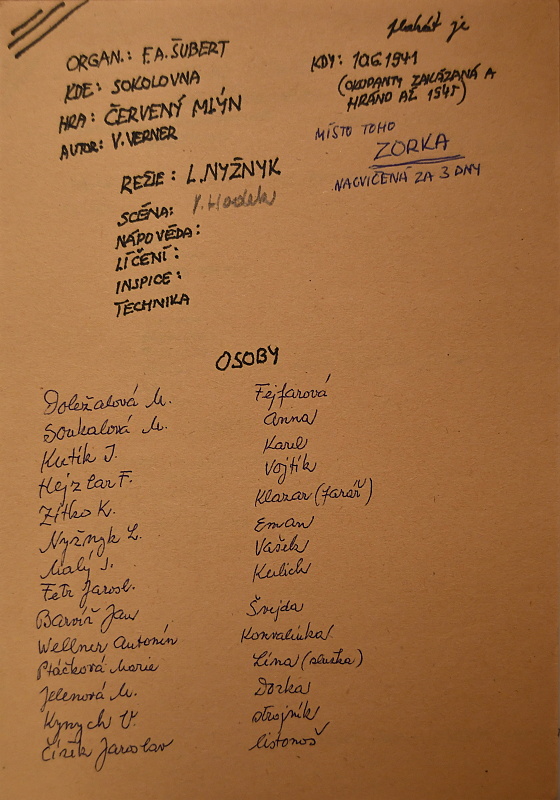 plakát je
ORGAN.: F. A. ŠUBERT
KDE: SOKOLOVNA
HRA: ČERVENÝ MLÝN
AUTOR: V. VERNER
KDY: 10.6.1941
(OKUPANTY ZAKÁZANÁ A
HRÁNO AŽ 1945)
MÍSTO TOHO
ZORKA
NACVIČENÁ ZA 3 DNY
REŽIE: L. NYŽNYK
SCÉNA:
NÁPOVĚDA:
LÍČENÍ:
INSPICE:
TECHNIKA
OSOBY
Doležalová M. Fejfarová
Soukalová M. Anna
Kutík J. Karel
Hejzlar F. Vojtík
Zítko K. Klazar (farář)
Nyžnyk L. Eman
Malý J. Vašek
Fetr Jarosl. Kulich
Barvíř Jan Švejda
Wellner Antonín Konvalinka
Ptáčková Marie Lína (služka)
Jelenová M. Dorka
Kynych V. strojník
Čížek Jaroslav listonoš